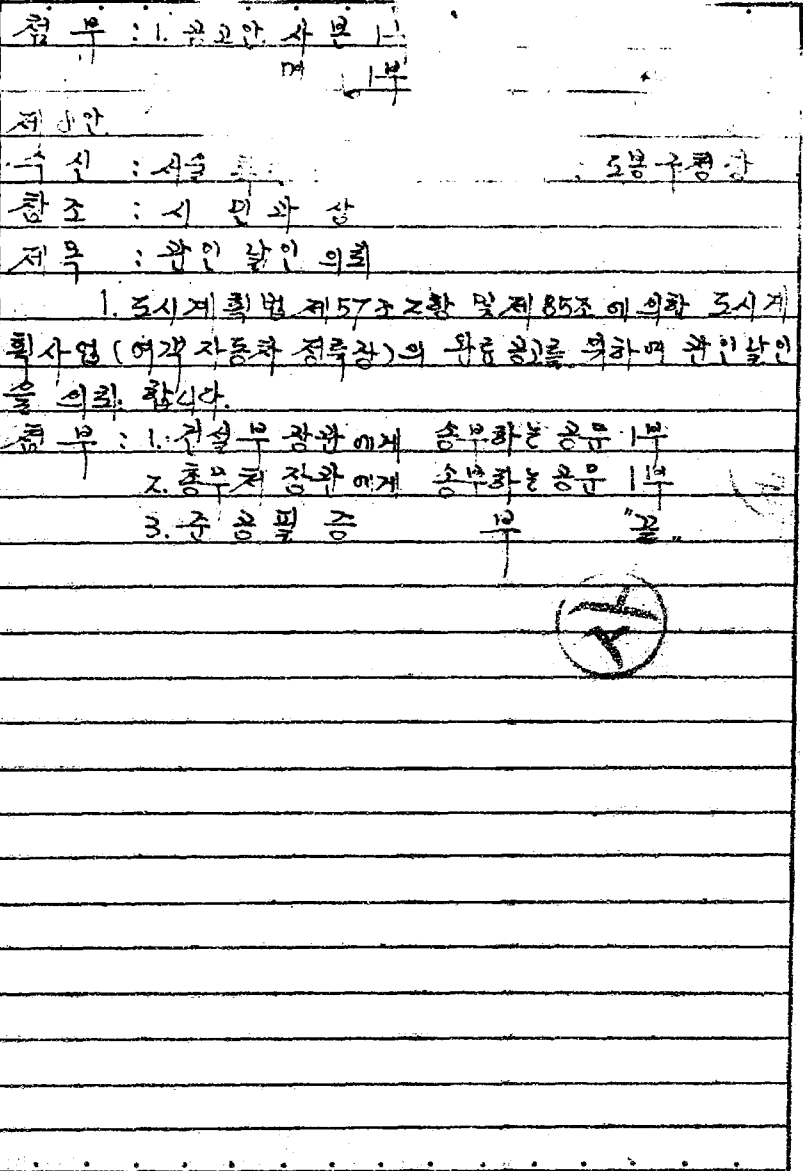 첨 부 : 1. 공고안 사본 1
1부
제 안
수 신 : 서울 도봉구청장
참 조 : 시 민 과 장
제 목 : 관인 날인 의뢰
1. 도시계획법 제57조 2항 및 제85조에 의한 도시계
획사업(여객 자동차 정류장)의 완료공고를 위하여 관인날인
을 의뢰 합니다.
첨 부 : 1. 건설부 장관에게 송부하는 공문 1부
2. 총무처 장관에게 송부하는 공문 1부
3. 준 공 필 증 부 "끝"